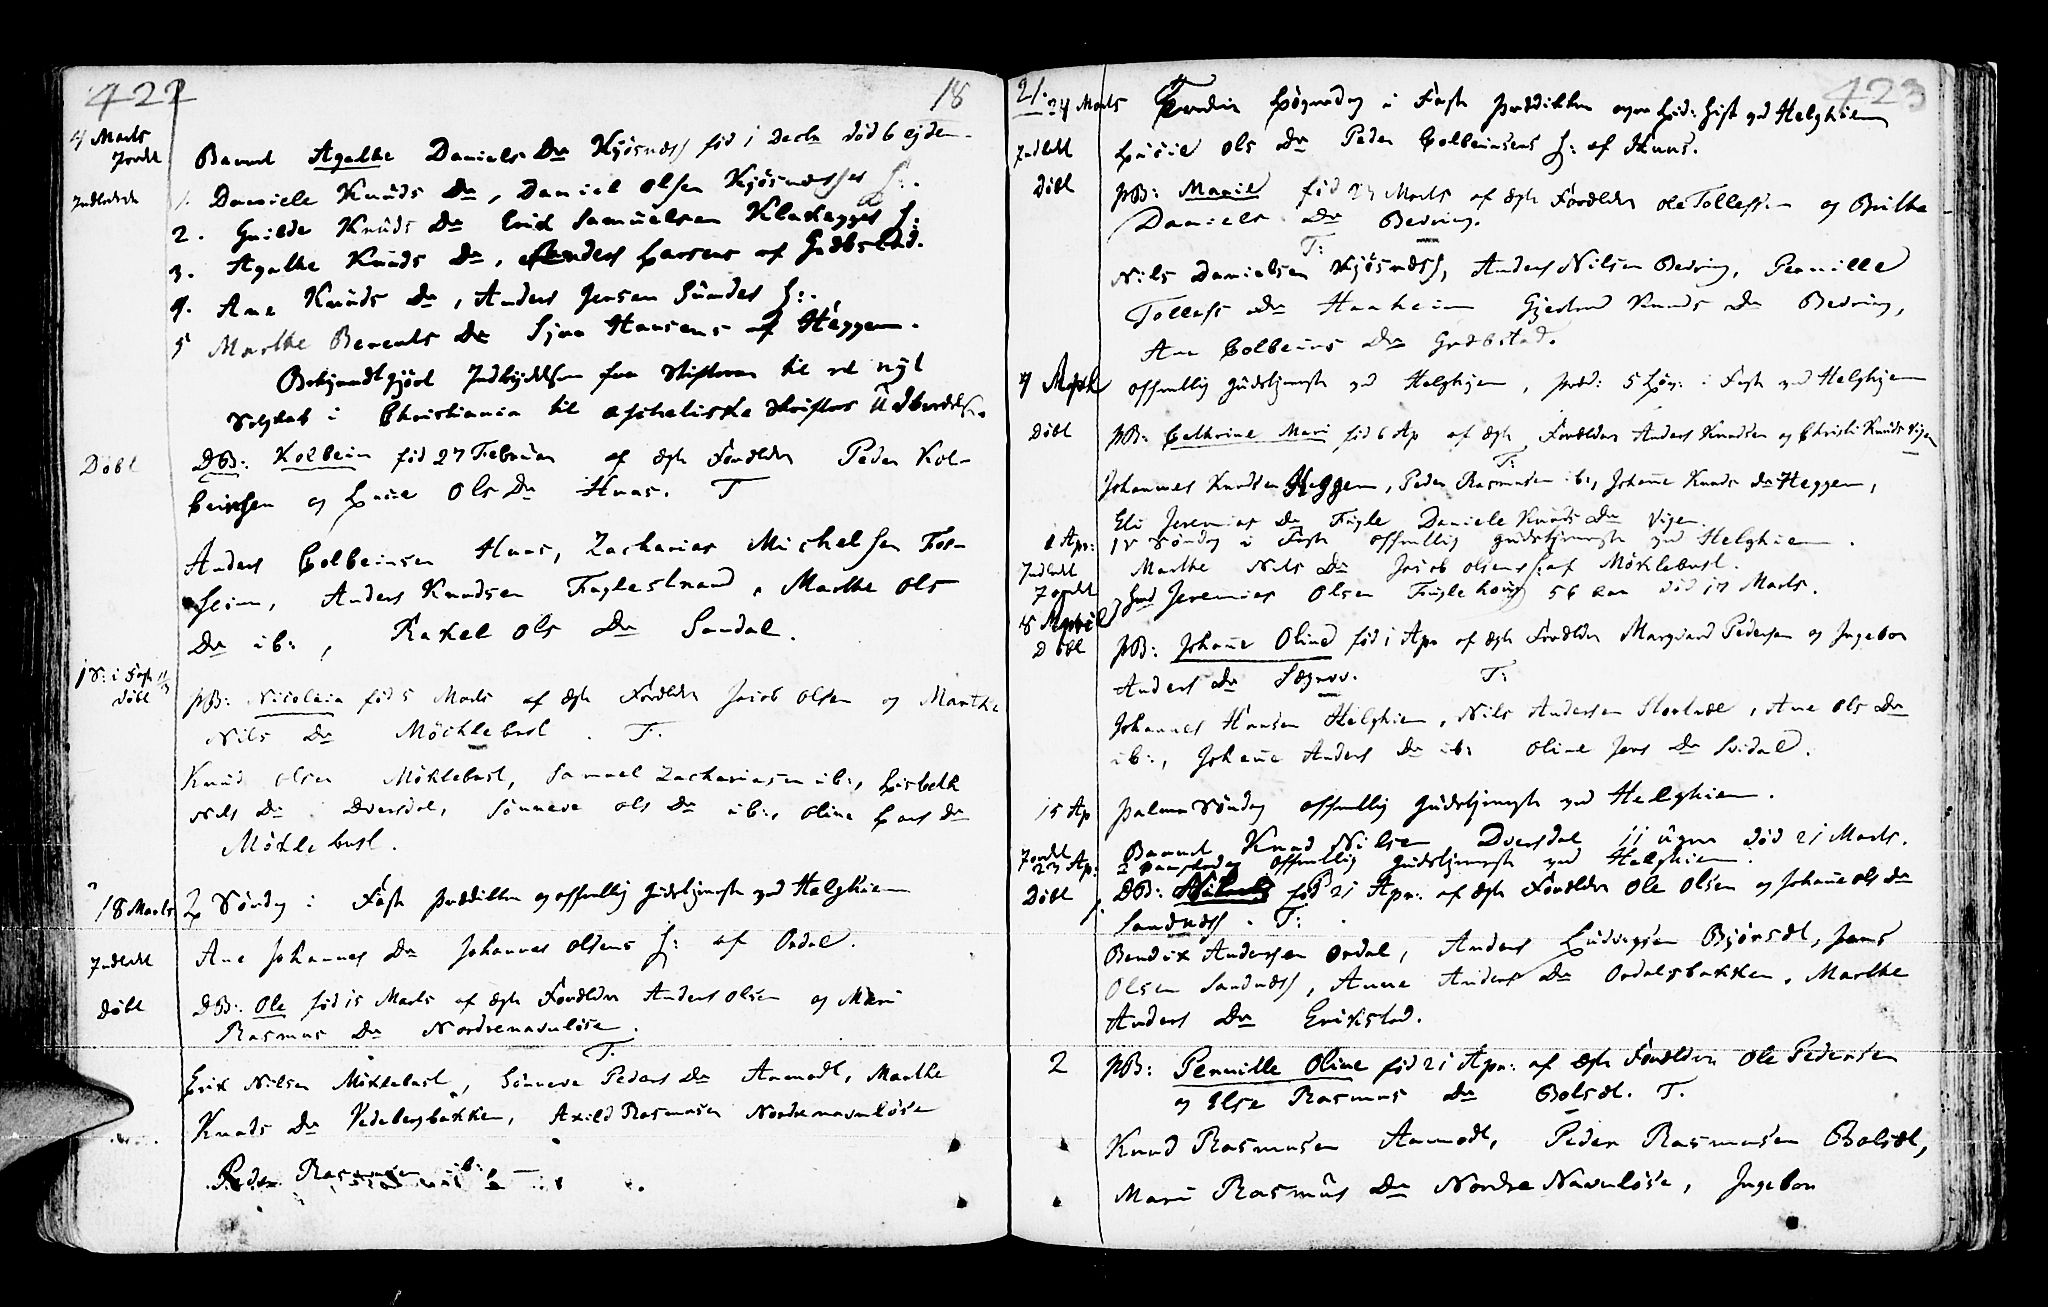 422
18
4 Marts
Jordet
Barnet Agathe Daniels Dr Kjøsnæss fød 1 Decbr død 6 ejden
Indledede
1. Daniele Knuds Dr, Daniel Olsen Kjøsnæsses H:.
2. Gurilde Knuds Dr Erik Samuelsen Klakegges H:
3. Agathe Knuds Dr, Anders Larsens af Grebstad.
4. Ane Knuds Dr, Anders Jensen Sundes H:.
5 Marthe Berents Dr Siver Hansens af Heggem.
Bekjendtgjort Indbydelsen fra Stifteren til et nyt
Selskab i Christiania til Apostoliske Skrifters Udbredelse.
Døbt
DB: Kolbein fød 27 Februar af ægte Forældre Peder Kol-
beinsen og Ols Dr Huus. T
Anders Colbeinsen Huus, Zacharias Michelsen Fos-
heim, Anders Knudsen Fuglestrand, Marthe Ols
Dr ib:, Rakel Ols Dr Sandal.
1 S: i Fast 11/3
Døbt
PB: Nicolaia fød 5 Marts af ægte Forældre Jacob Olsen og Marthe
Nils Dr Møklebust. T.
Knud Olsen Møklebust, Samuel Zachariasen ib:, Lisbeth
Nils Dr Dvergsdal, Sønneve Ols Dr ib:, Oline Lars Dr
Møklebust.
18 Marts
2 Søndag i Faste Prædiken og offentlig Gudstjeneste ved Helgheim
Indledet
Ane Johannes Dr Johannes Olsens H: af Ordal.
Døbt
DB: Ole fød 15 Marts af ægte Forældre Anders Olsen og Mari
Rasmus Dr Nordrenavnløse.
T.
Erik Nilsen Møklebust, Sønneve Peders Dr Aamodt, Marthe
Knuds Dr Vedebergbakken, Axild Rasmusen Nordrenavnløse
Peder Rasmusen ib:
423
21. 24 Marts
Tredie Løgnedag i Faste Prædiken ved Helgheim
Indledet
Ols Dr Peder Colbeinsens H: af Huus.
Døbt
PB: Marie fød 24 Marts af ægte Forældre Ole Tollefsen og Brithe
Daniels Dr Bedring.
T:
Nils Danielsen Kjøsnæss, Anders Nilsen Bedring, Pernille
Tollefs Dr Haaheim Gjertrud Knuds Dr Bedring,
Ane Colbeins Dr Grebstad.
offentlig Gudstjeneste ved Helgheim, præd: 5 Løv: i Faste ved Helgheim
Døbt
PB: Cathrine Mari fød 6 Ap af ægte Forældre Anders Knudsen og Christi Knuds Vigen
T:
Johannes Knudsen Heggem, Peder Rasmusen ib:, Johane Knuds Dr Heggem,
Eli Jeremias Dr Fugle Daniele Knuds Dr Vigen.
1 Apr:
Søndag i Faste offentlig Gudstjeneste ved Helgheim.
Indledet
Marthe Nils Dr Jacob Olsens H: af Møklebust.
Jordet
Jeremias Olsen Fuglehoug 56 Aar død 17 Marts.
8 April
Døbt
PB: Johane Oline fød 1 Apr af ægte Forældre Marqvard Pedersen og Ingebor
Anders Dr Sægrov. T:
Johannes Hansen Helgheim, Nils Andersen Stortræe, Ane Ols Dr
ib:, Johane Anders Dr ib: Oline Jens Dr Svidal.
15 Ap
Palme Søndag offentlig Gudstjeneste ved Helgheim.
Jordet
Barnet Knud Nilsen Dvergsdal 11 Uger død 21 Marts.
23 Ap:
2 Paaskedag offentlig Gudstjeneste ved Helgheim.
Døbt
1.
DB: fød 21 Apr: af ægte Forældre Ole Olsen og Johane Ols Dr
Sandnæss. T:
Bendix Andersen Ordal, Anders Ludvigsen Bjørsæt, Jens
Olsen Sandnæss, Anne Anders Dr Ordalsbakken, Marthe
Anders Dr Erikstad.
2
PB: Pernille Oline fød 21 Apr: af ægte Forældre Ole Pedersen
og Else Rasmus Dr Bolsæt. T.
Knud Rasmusen Aamodt, Peder Rasmusen Bolsæt,
Mari Rasmus Dr Nordre Navnløse, Ingebor